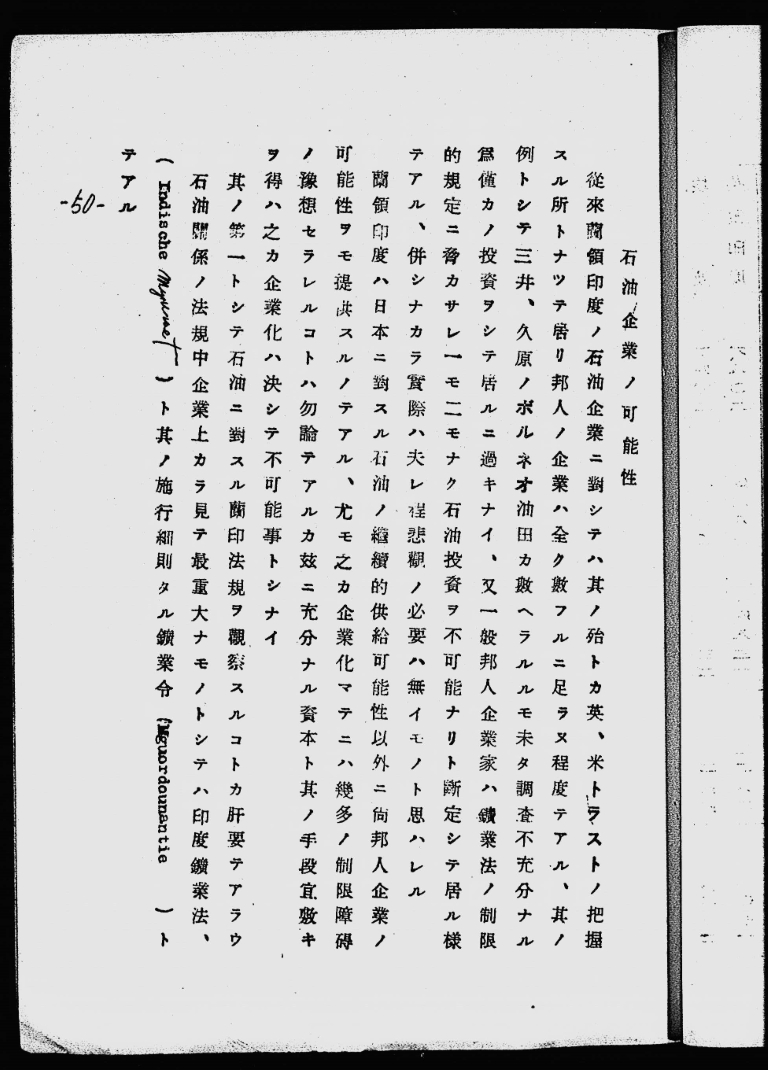 石油企業ノ可能性
從來蘭領印度ノ石油企業ニ對シテハ其ノ殆トカ英、米トラストノ把握
スル所トナツテ居リ邦人ノ企業ハ全ク數フルニ足ラヌ程度テアル、其ノ
例トシテ三井、久原ノボルネオ油田カ數ヘラルルモ未タ調査不充分ナル
爲僅カノ投資ヲシテ居ルニ過キナイ、又一般邦人企業家ハ鑛業法ノ制限
的規定ニ脅カサレ一モ二モナク石油投資ヲ不可能ナリト斷定シテ居ル樣
テアル、併シナカラ實際ハ夫レ程悲觀ノ必要ハ無イモノト思ハレル
蘭領印度ハ日本ニ對スル石油ノ繼續的供給可能性以外ニ尙邦人企業ノ
可能性ヲモ提供スルノテアル、尤モ之カ企業化マテニハ幾多ノ制限障碍
ノ豫想セラレルコトハ勿論テアルカ玆ニ充分ナル資本ト其ノ手段宜敷キ
ヲ得ハ之カ企業化ハ決シテ不可能事トシナイ
其ノ第一トシテ石油ニ對スル蘭印法規ヲ觀察スルコトカ肝要テアラウ
石油關係ノ法規中企業上カラ見テ最重大ナモノトシテハ印度鑛業法、
(Indische Mynwet)ト其ノ施行細則タル鑛業令(Mguordounantie)ト
テアル
-50-